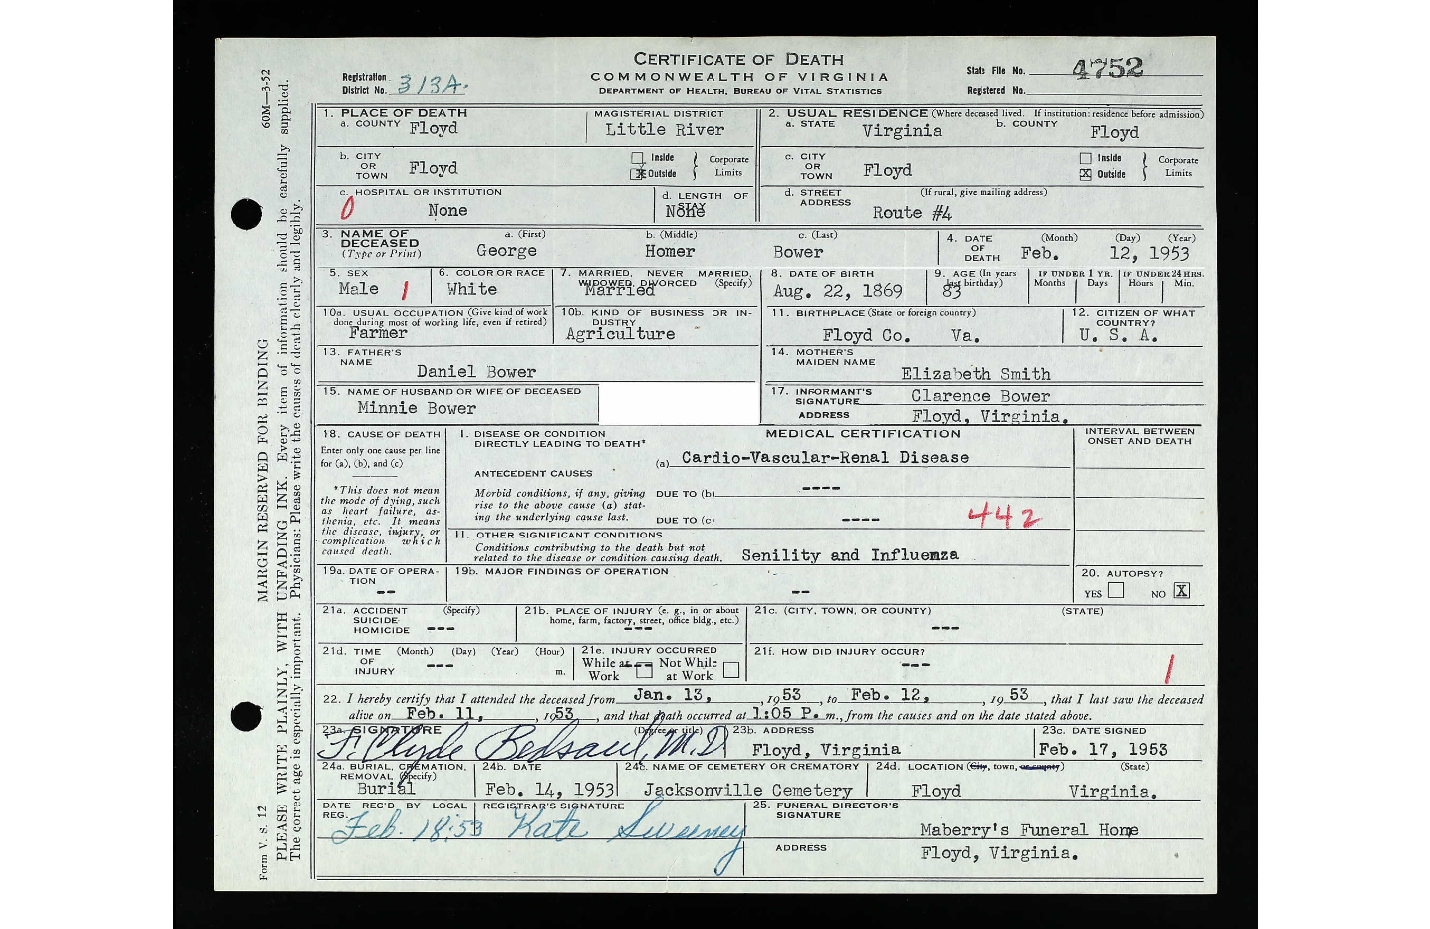 CERTIFICATE OF DEATH
COMMONWEALTH OF VIRGINIA
DEPARTMENT OF HEALTH, BUREAU OF VITAL STATISTICS
Registration District No. 313A.
State File No. 4752
Registered No.
60M—3-52
MARGIN RESERVED FOR BINDING
PLEASE WRITE PLAINLY, WITH UNFADING INK. Every item of information should be carefully supplied.
The correct age is especially important. Physicians: Please write the causes of death clearly and legibly.
Form V. S. 12
1. PLACE OF DEATH
a. COUNTY Floyd
MAGISTERIAL DISTRICT
Little River
2. USUAL RESIDENCE (Where deceased lived. If institution: residence before admission)
a. STATE Virginia b. COUNTY Floyd
b. CITY OR TOWN Floyd
Inside Outside Corporate Limits
c. CITY OR TOWN Floyd
Inside X Outside Corporate Limits
c. HOSPITAL OR INSTITUTION
0 None
d. LENGTH OF STAY
None
d. STREET ADDRESS (If rural, give mailing address)
Route #4
3. NAME OF DECEASED (Type or Print)
a. (First) b. (Middle) c. (Last)
George Homer Bower
4. DATE OF DEATH (Month) (Day) (Year)
Feb. 12, 1953
5. SEX
Male 1
6. COLOR OR RACE
White
7. MARRIED, NEVER MARRIED, WIDOWED, DIVORCED (Specify)
Married
8. DATE OF BIRTH
Aug. 22, 1869
9. AGE (In years last birthday)
83
IF UNDER 1 YR. Months Days
IF UNDER 24 HRS. Hours Min.
10a. USUAL OCCUPATION (Give kind of work done during most of working life, even if retired)
Farmer
10b. KIND OF BUSINESS OR INDUSTRY
Agriculture
11. BIRTHPLACE (State or foreign country)
Floyd Co. Va.
12. CITIZEN OF WHAT COUNTRY?
U. S. A.
13. FATHER'S NAME
Daniel Bower
14. MOTHER'S MAIDEN NAME
Elizabeth Smith
15. NAME OF HUSBAND OR WIFE OF DECEASED
Minnie Bower
17. INFORMANT'S SIGNATURE Clarence Bower
ADDRESS Floyd, Virginia.
18. CAUSE OF DEATH
Enter only one cause per line for (a), (b), and (c)
*This does not mean the mode of dying, such as heart failure, asthenia, etc. It means the disease, injury, or complication which caused death.
MEDICAL CERTIFICATION
INTERVAL BETWEEN ONSET AND DEATH
I. DISEASE OR CONDITION DIRECTLY LEADING TO DEATH*
(a) Cardio-Vascular-Renal Disease
ANTECEDENT CAUSES
Morbid conditions, if any, giving rise to the above cause (a) stating the underlying cause last.
DUE TO (b) ----
DUE TO (c) ----
442
II. OTHER SIGNIFICANT CONDITIONS
Conditions contributing to the death but not related to the disease or condition causing death.
Senility and Influenza
19a. DATE OF OPERATION
--
19b. MAJOR FINDINGS OF OPERATION
--
20. AUTOPSY?
YES NO X
21a. ACCIDENT SUICIDE HOMICIDE (Specify)
---
21b. PLACE OF INJURY (e. g., in or about home, farm, factory, street, office bldg., etc.)
---
21c. (CITY, TOWN, OR COUNTY) (STATE)
---
21d. TIME OF INJURY (Month) (Day) (Year) (Hour) m.
---
21e. INJURY OCCURRED
While at Work Not While at Work
21f. HOW DID INJURY OCCUR?
---
1
22. I hereby certify that I attended the deceased from Jan. 13, , 1953 , to Feb. 12, , 1953 , that I last saw the deceased
alive on Feb. 11, , 1953 , and that death occurred at 1:05 P. m., from the causes and on the date stated above.
23a. SIGNATURE (Degree or title)
F. Clyde Bedsaul, M.D.
23b. ADDRESS
Floyd, Virginia
23c. DATE SIGNED
Feb. 17, 1953
24a. BURIAL, CREMATION, REMOVAL (Specify)
Burial
24b. DATE
Feb. 14, 1953
24c. NAME OF CEMETERY OR CREMATORY
Jacksonville Cemetery
24d. LOCATION (City, town, or county) (State)
Floyd Virginia.
DATE REC'D BY LOCAL REG.
Feb. 18-53
REGISTRAR'S SIGNATURE
Kate Sweeney
25. FUNERAL DIRECTOR'S SIGNATURE
Maberry's Funeral Home
ADDRESS Floyd, Virginia.